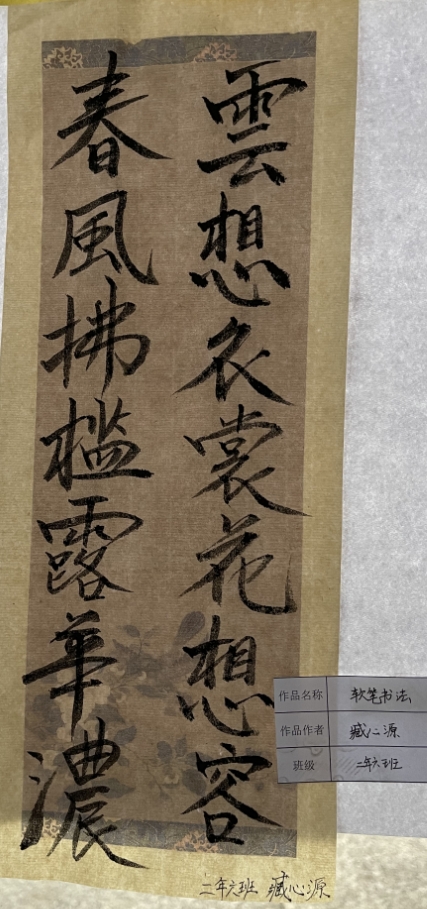 雲想衣裳花想容
春風拂檻露華濃
作品名称 软笔书法
作品作者 臧心源
班级 二年六班
二年六班 臧心源